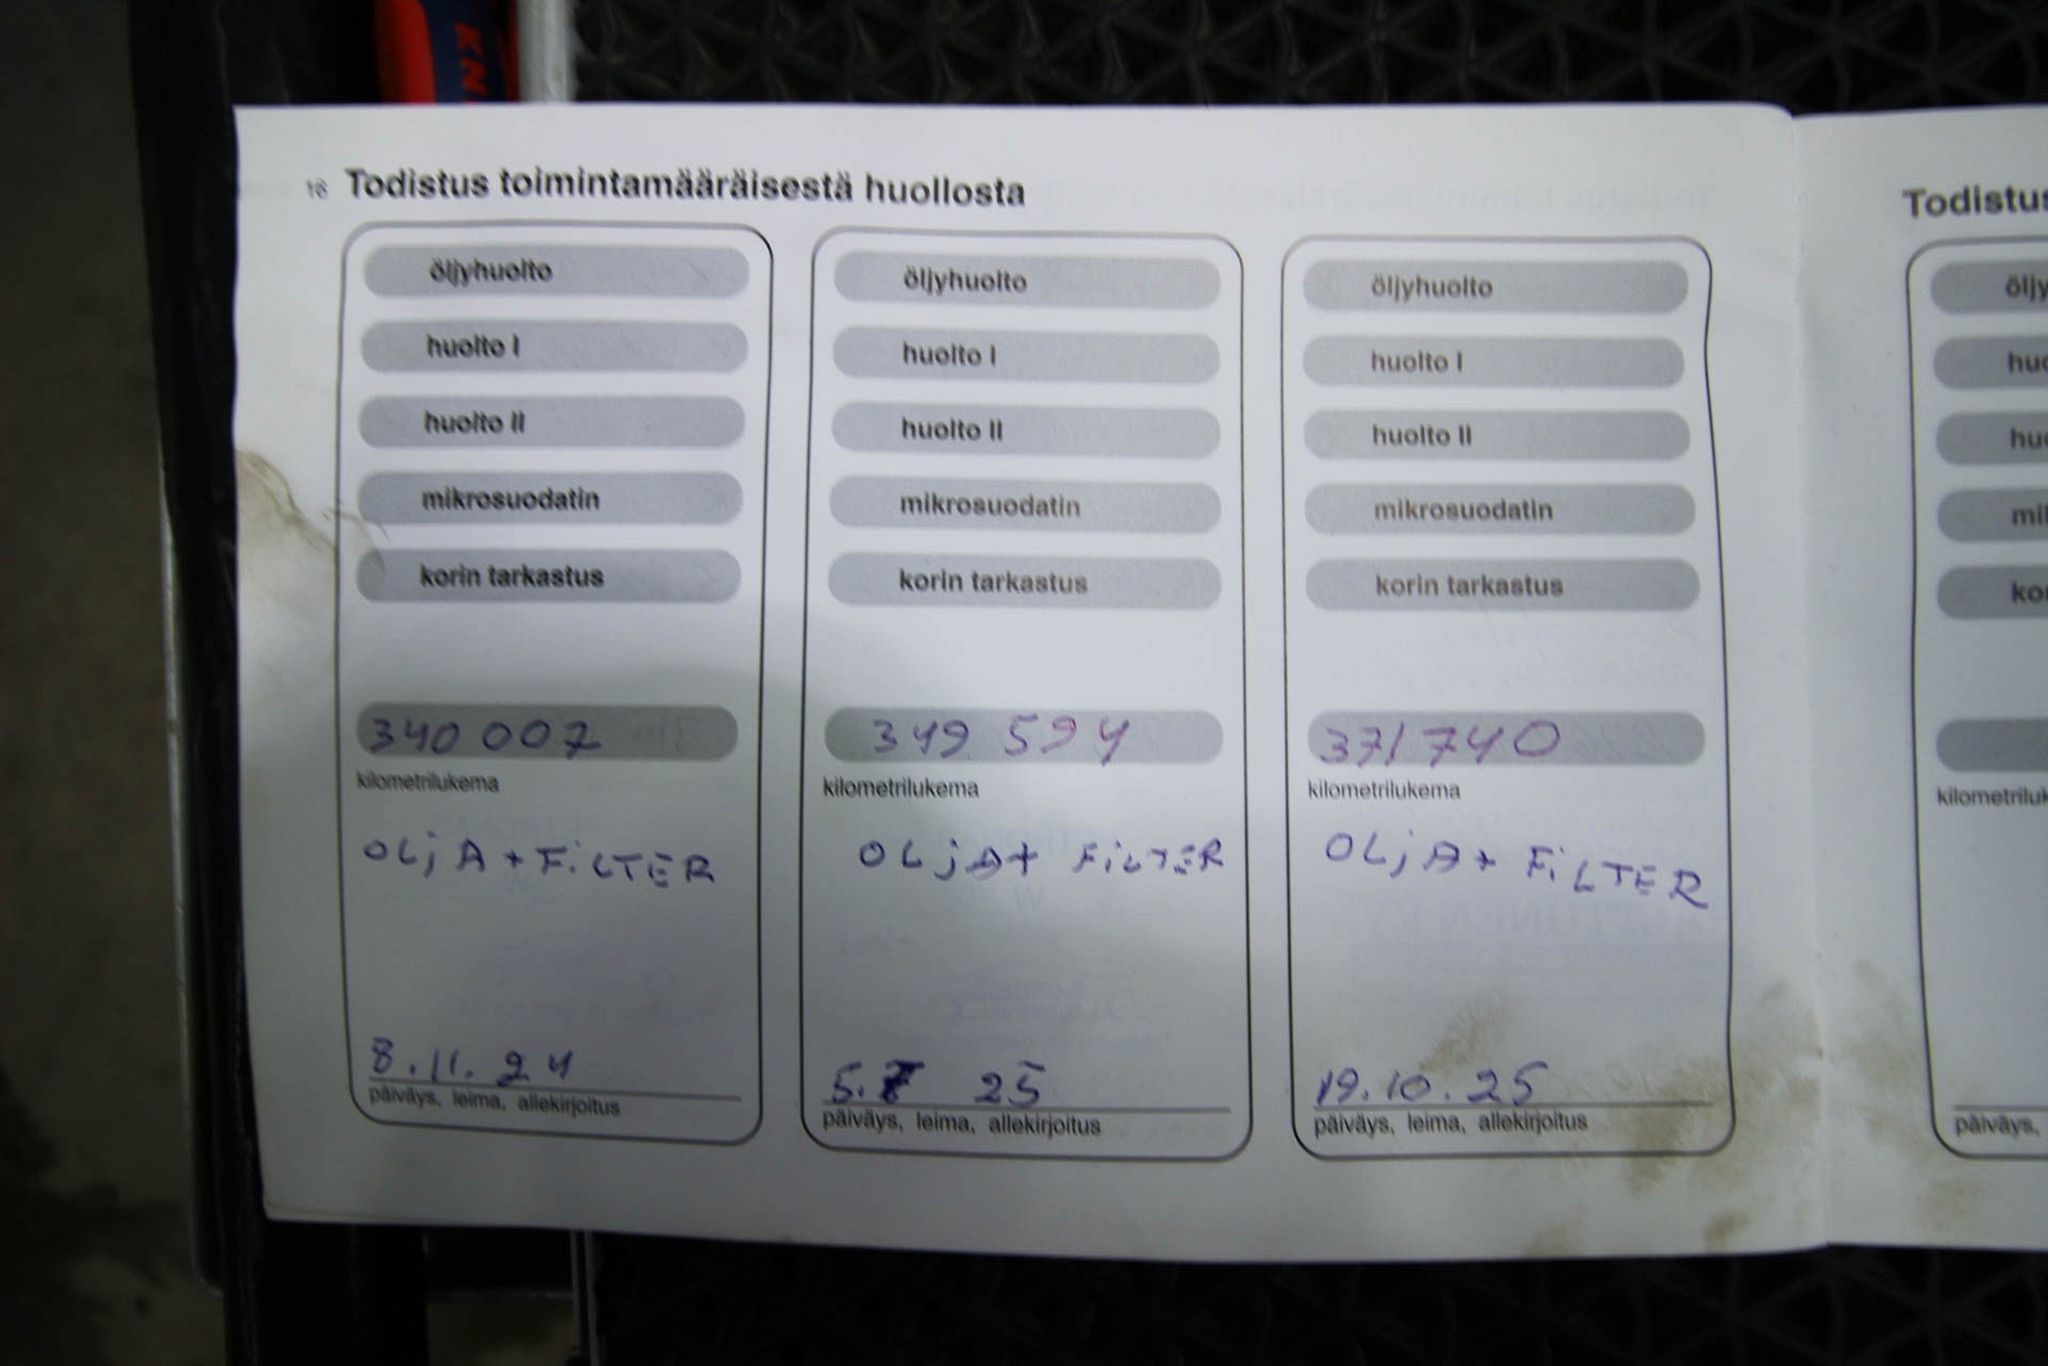 KN
16 Todistus toimintamääräisestä huollosta
öljyhuolto
huolto I
huolto II
mikrosuodatin
korin tarkastus
340 007
kilometrilukema
OLjA + FiLTER
8.11.24
päiväys, leima, allekirjoitus
öljyhuolto
huolto I
huolto II
mikrosuodatin
korin tarkastus
349 594
kilometrilukema
OLjA+ FiLTER
5. 25
päiväys, leima, allekirjoitus
öljyhuolto
huolto I
huolto II
mikrosuodatin
korin tarkastus
371 740
kilometrilukema
OLjA+ FiLTER
19.10.25
päiväys, leima, allekirjoitus
Todistus
öljy
huo
huo
mik
kor
kilometriluk
päiväys,